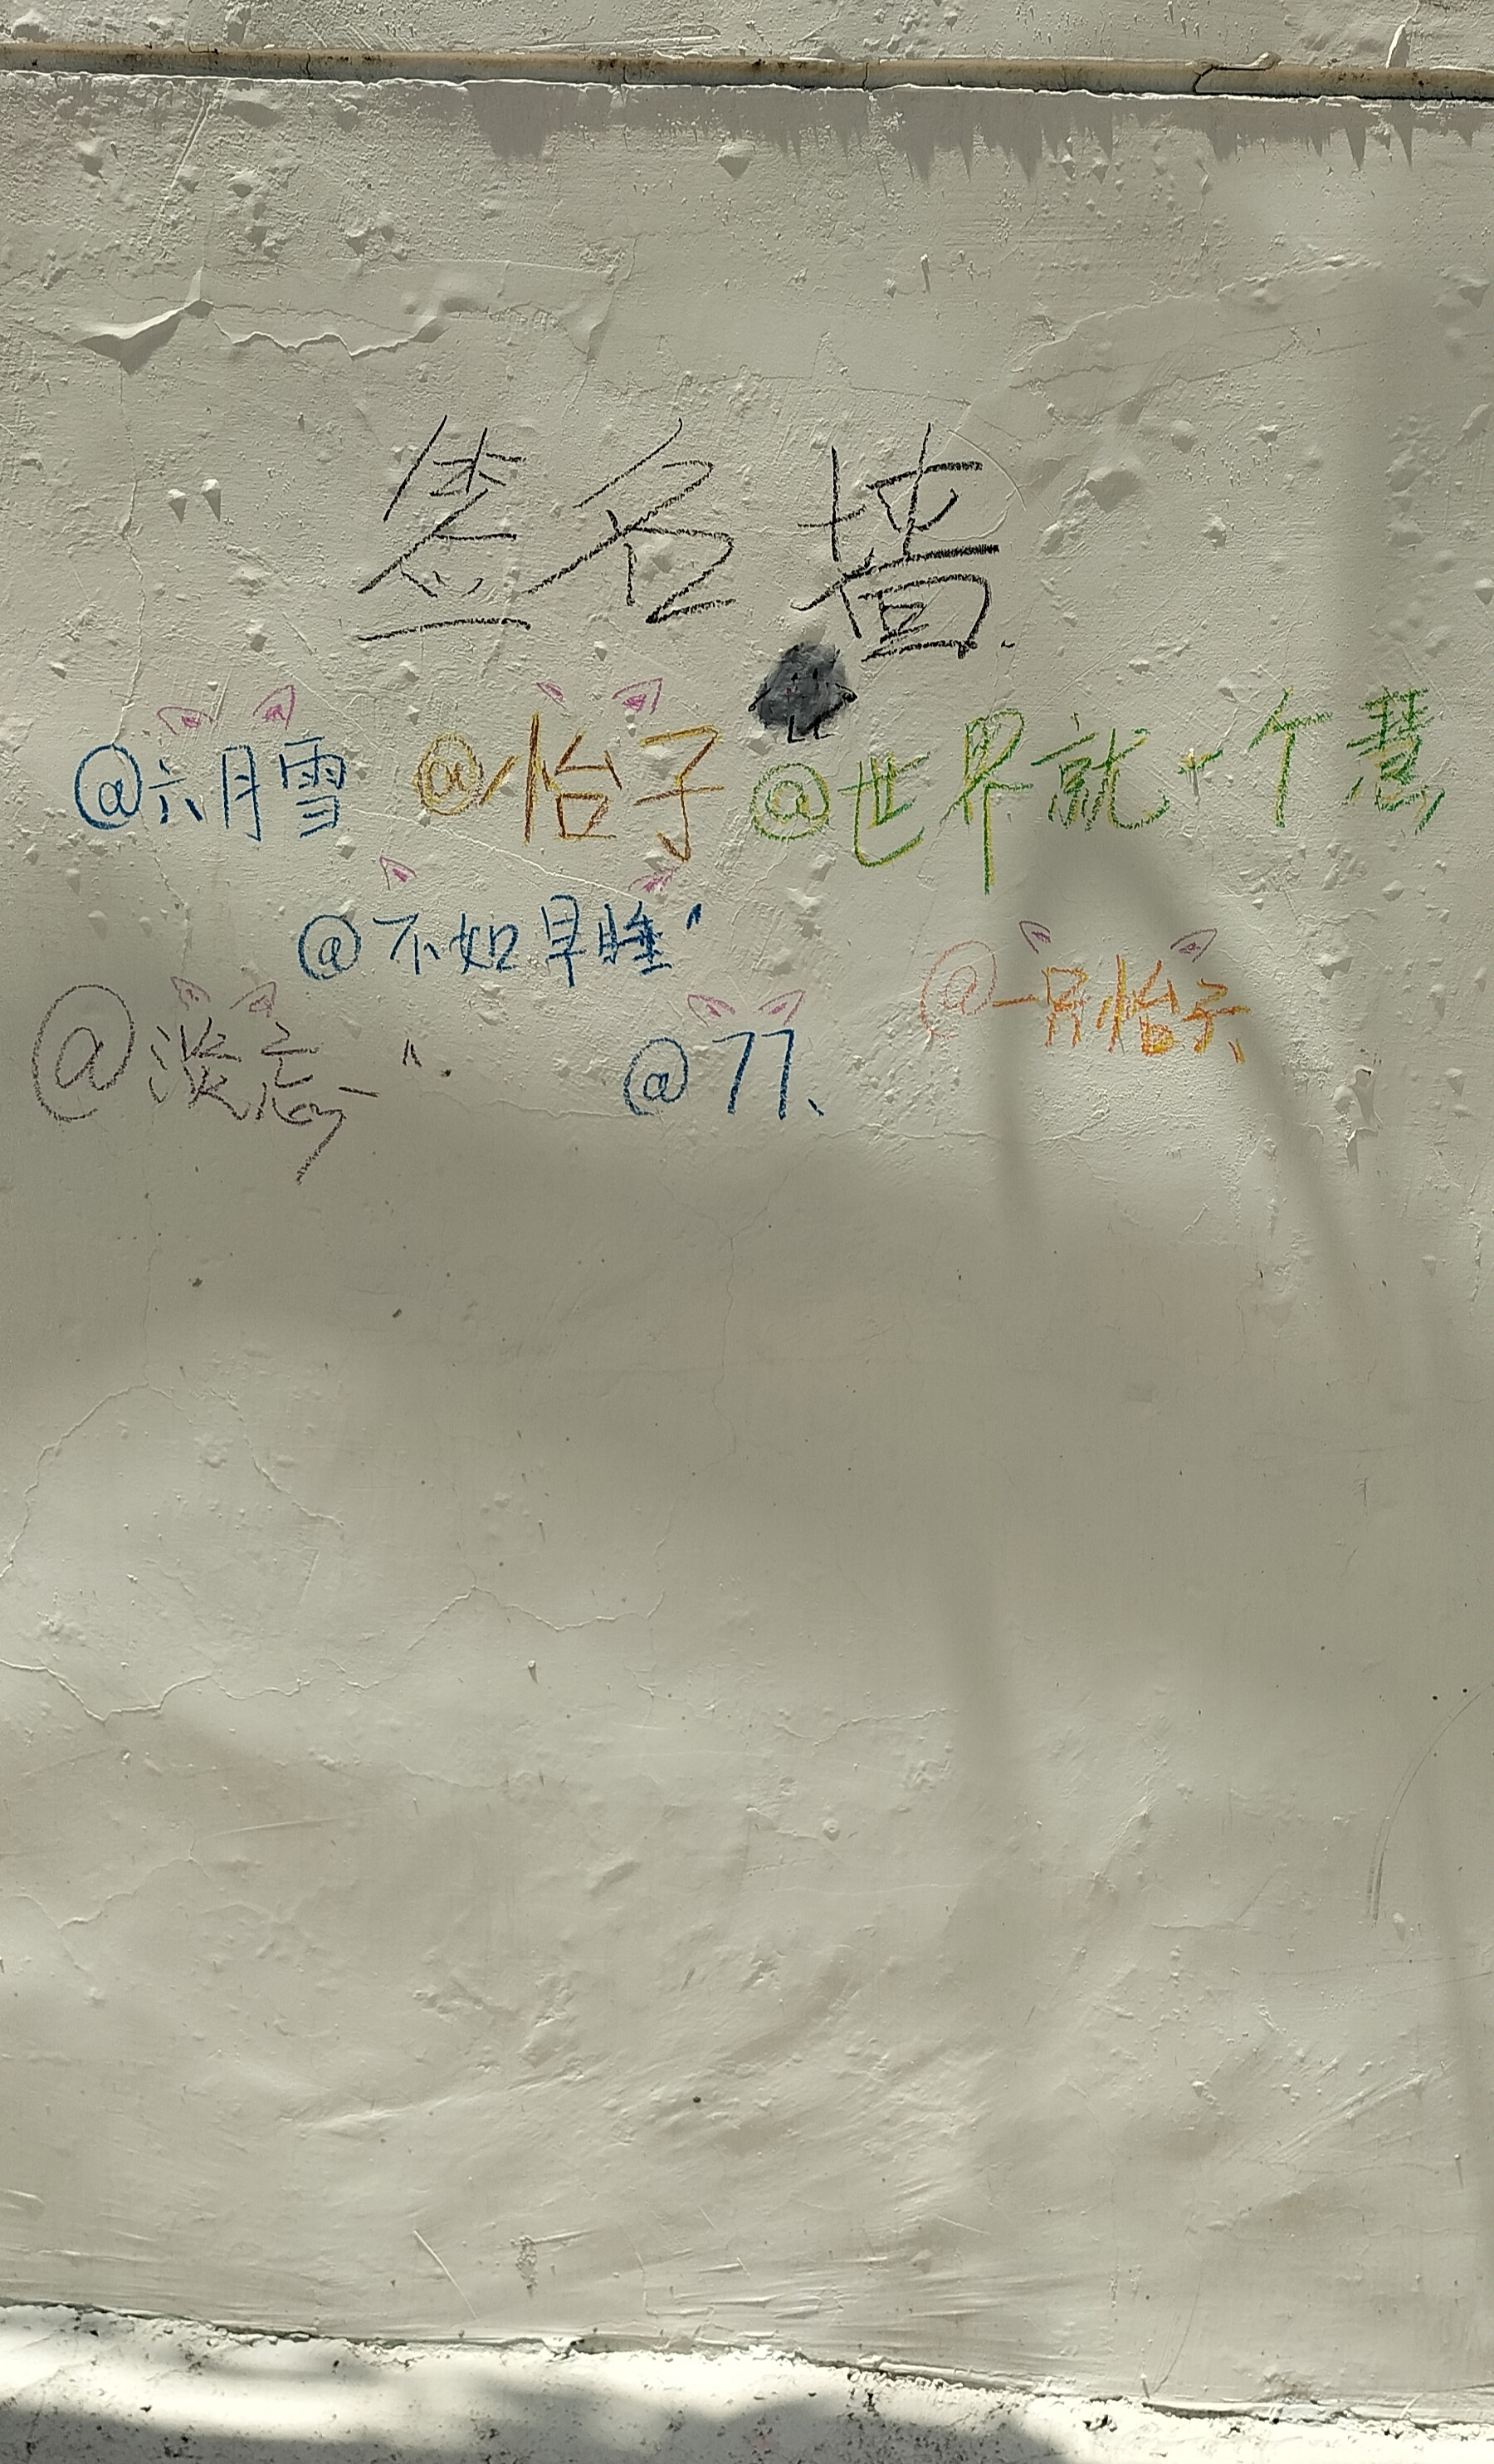 签名墙.
@六月雪 @怡子 @世界就一个慧
@不如早睡"
@一只怡子、
@淡忘 " @77、